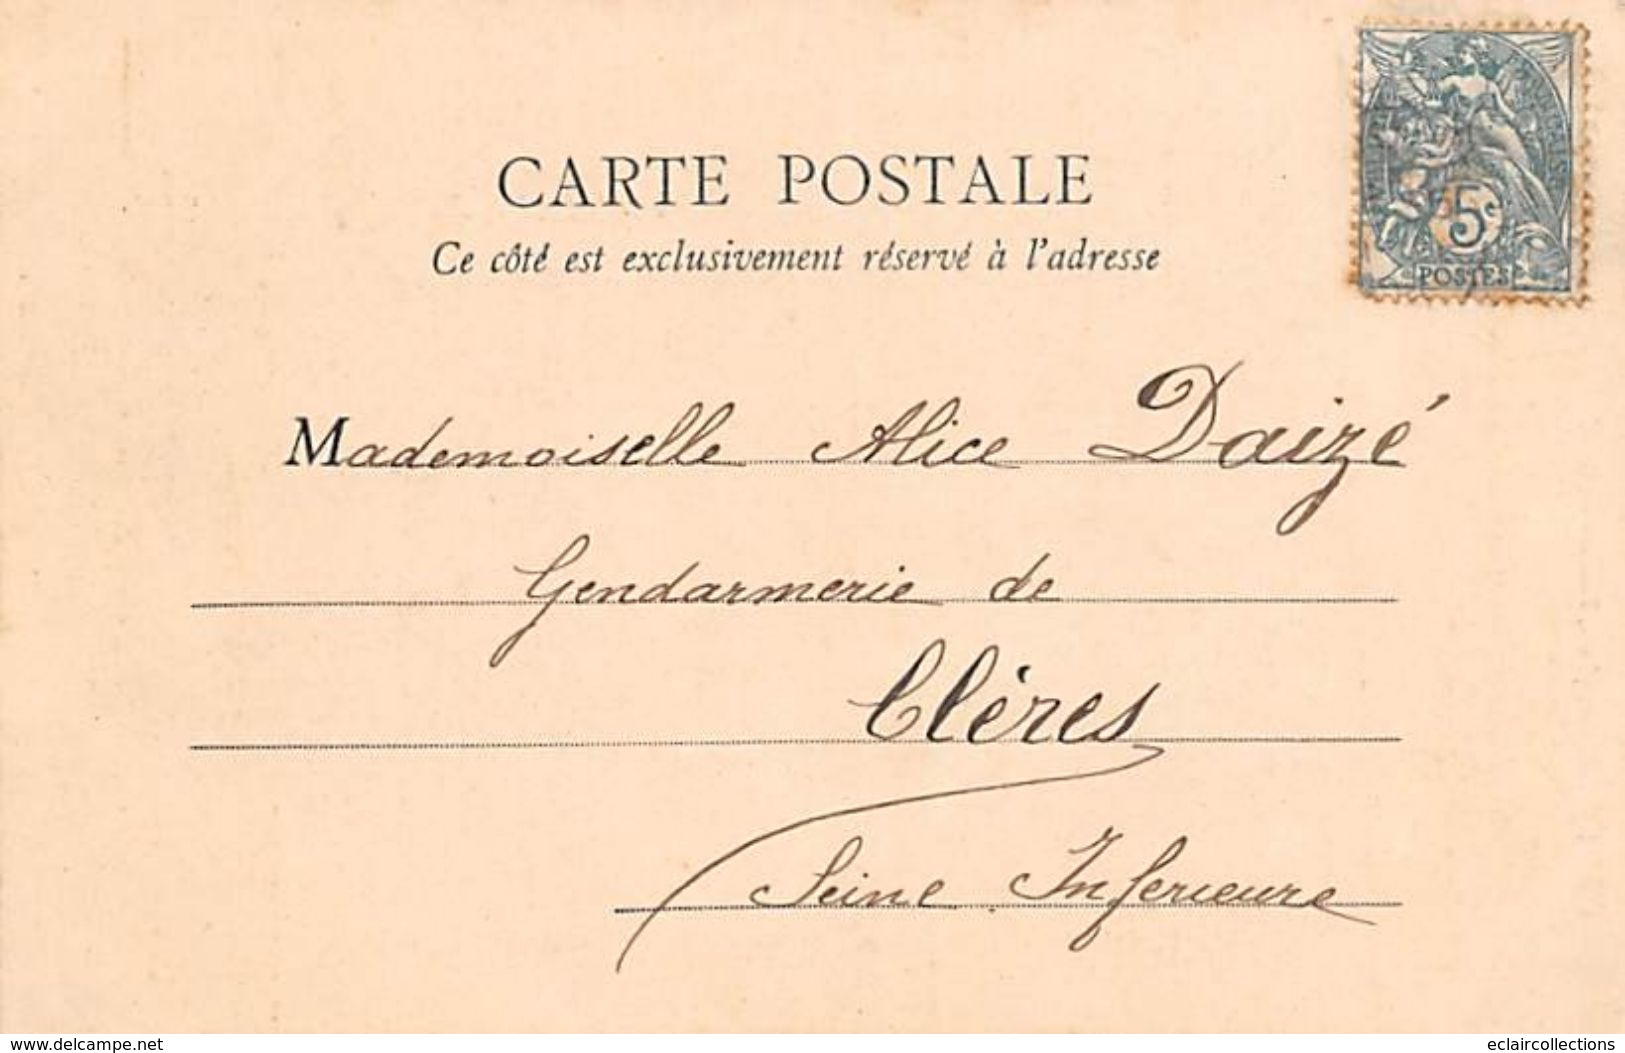 CARTE POSTALE
Ce côté est exclusivement réservé à l'adresse
5c
POSTES
Mademoiselle Alice Daizé
Gendarmerie de
Clères
Seine Inferieure
www.delcampe.net
eclaircollections